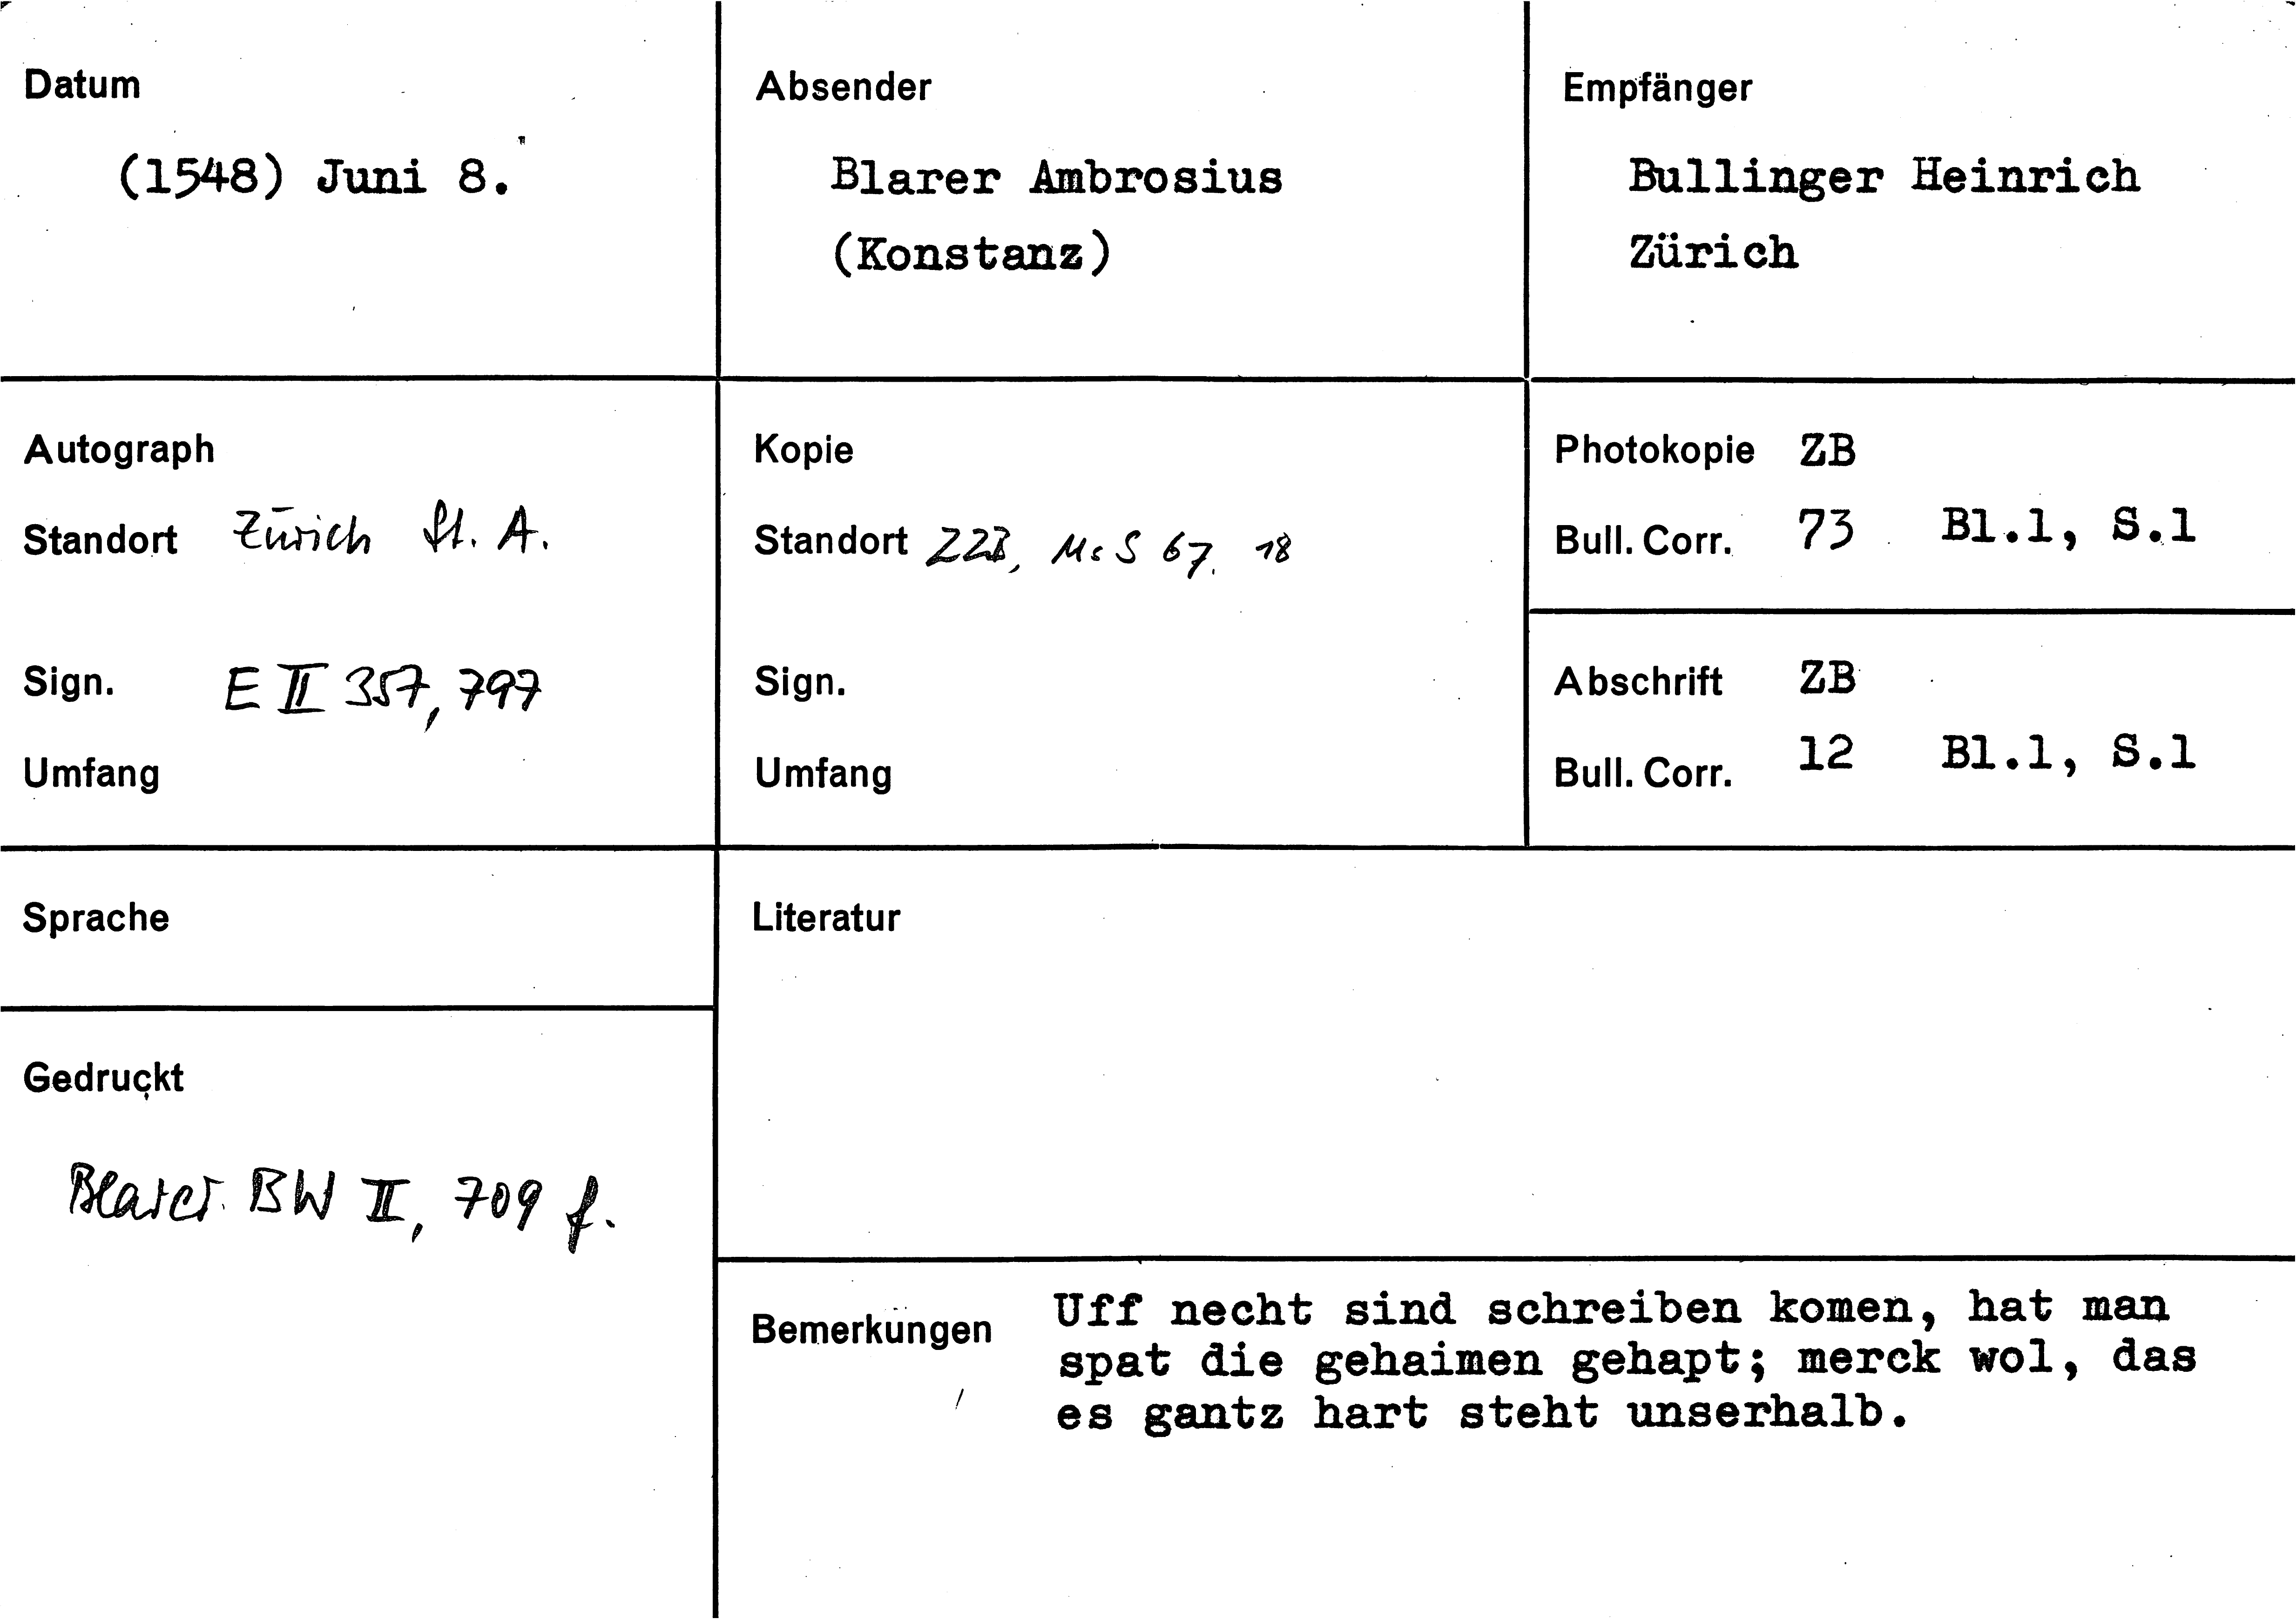 Datum
(1548) Juni 8.
Absender
Blarer Ambrosius
(Konstanz)
Empfänger
Bullinger Heinrich
Zürich
Autograph
Standort Zürich St. A.
Sign. E II 357, 797
Umfang
Kopie
Standort ZZB, Ms S 67. 18
Sign.
Umfang
Photokopie ZB
Bull. Corr. 73 Bl.1, S.1
Abschrift ZB
Bull. Corr. 12 Bl.1, S.1
Sprache
Gedruckt
Blarer BW II, 709 f.
Literatur
Bemerkungen
Uff necht sind schreiben komen, hat man
spat die gehaimen gehapt; merck wol, das
es gantz hart steht unserhalb.